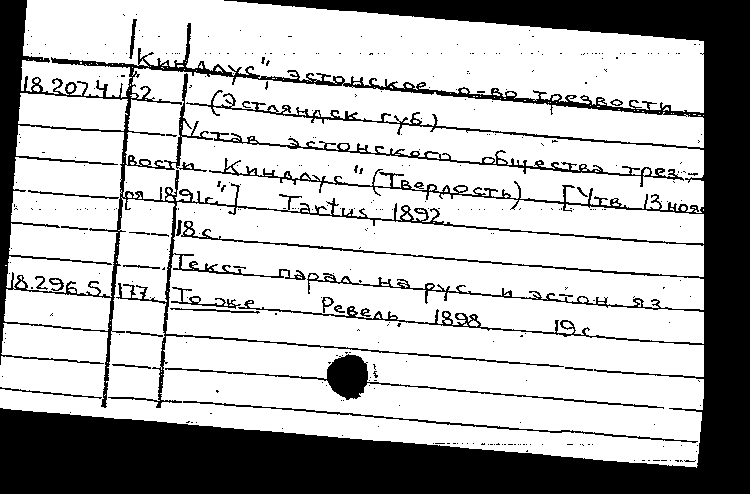 "Киндлус", эстонское о-во трезвости
18.207.4.162. (Эстляндск. губ.)
Устав эстонского общества трез-
вости Киндлус" (Твердость). [Утв. 13 нояб
ря 1891г."] Tartus, 1892.
18 с.
Текст парал. на рус. и эстон. яз.
18.296.5.177. То же. Ревель, 1898. 19 с.